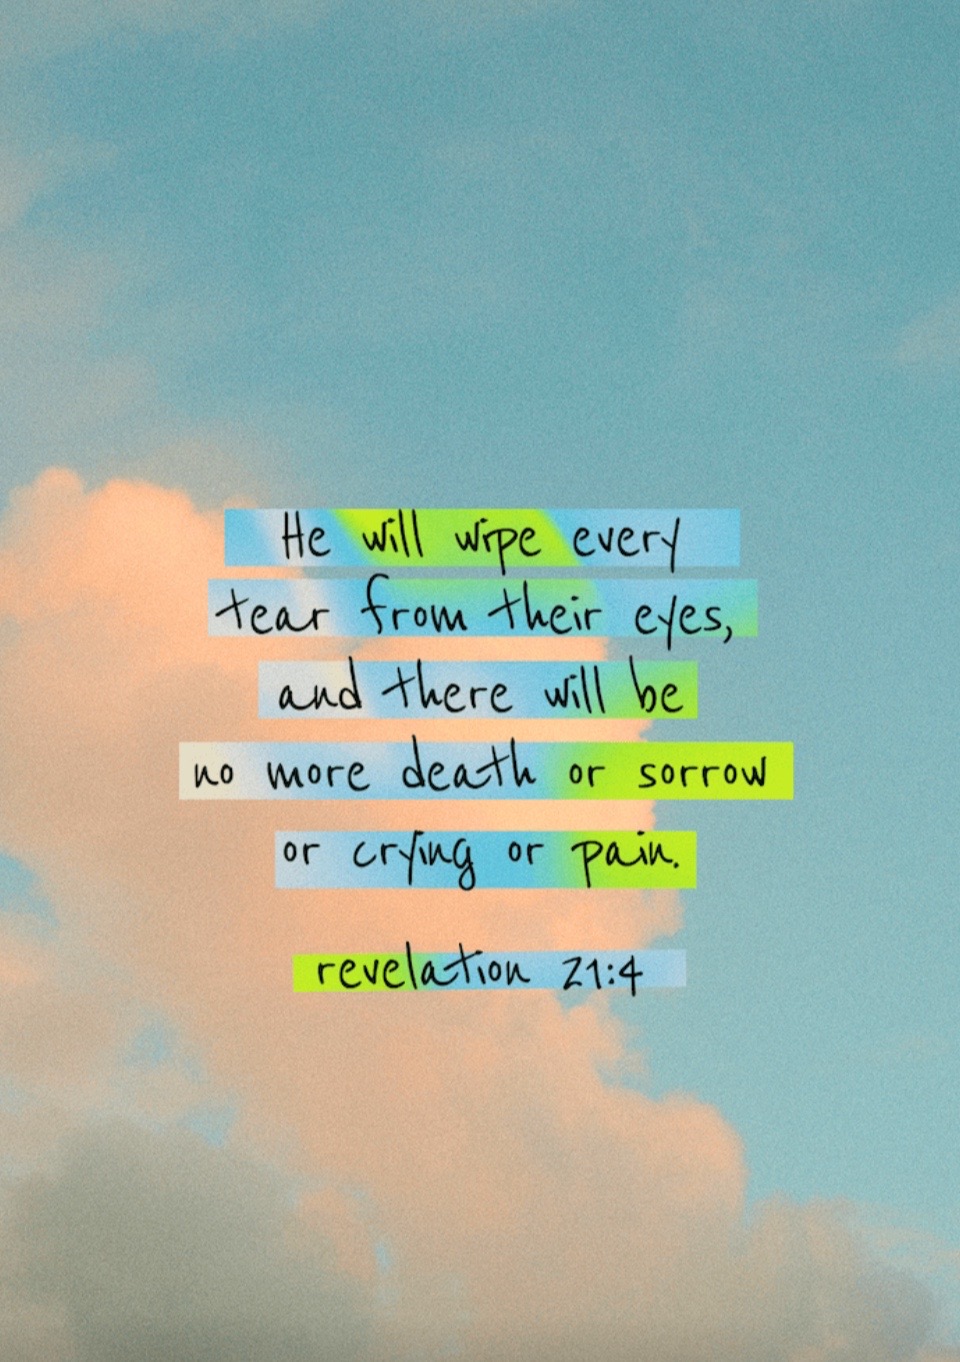 He will wipe every
tear from their eyes,
and there will be
no more death or sorrow
or crying or pain.
revelation 21:4